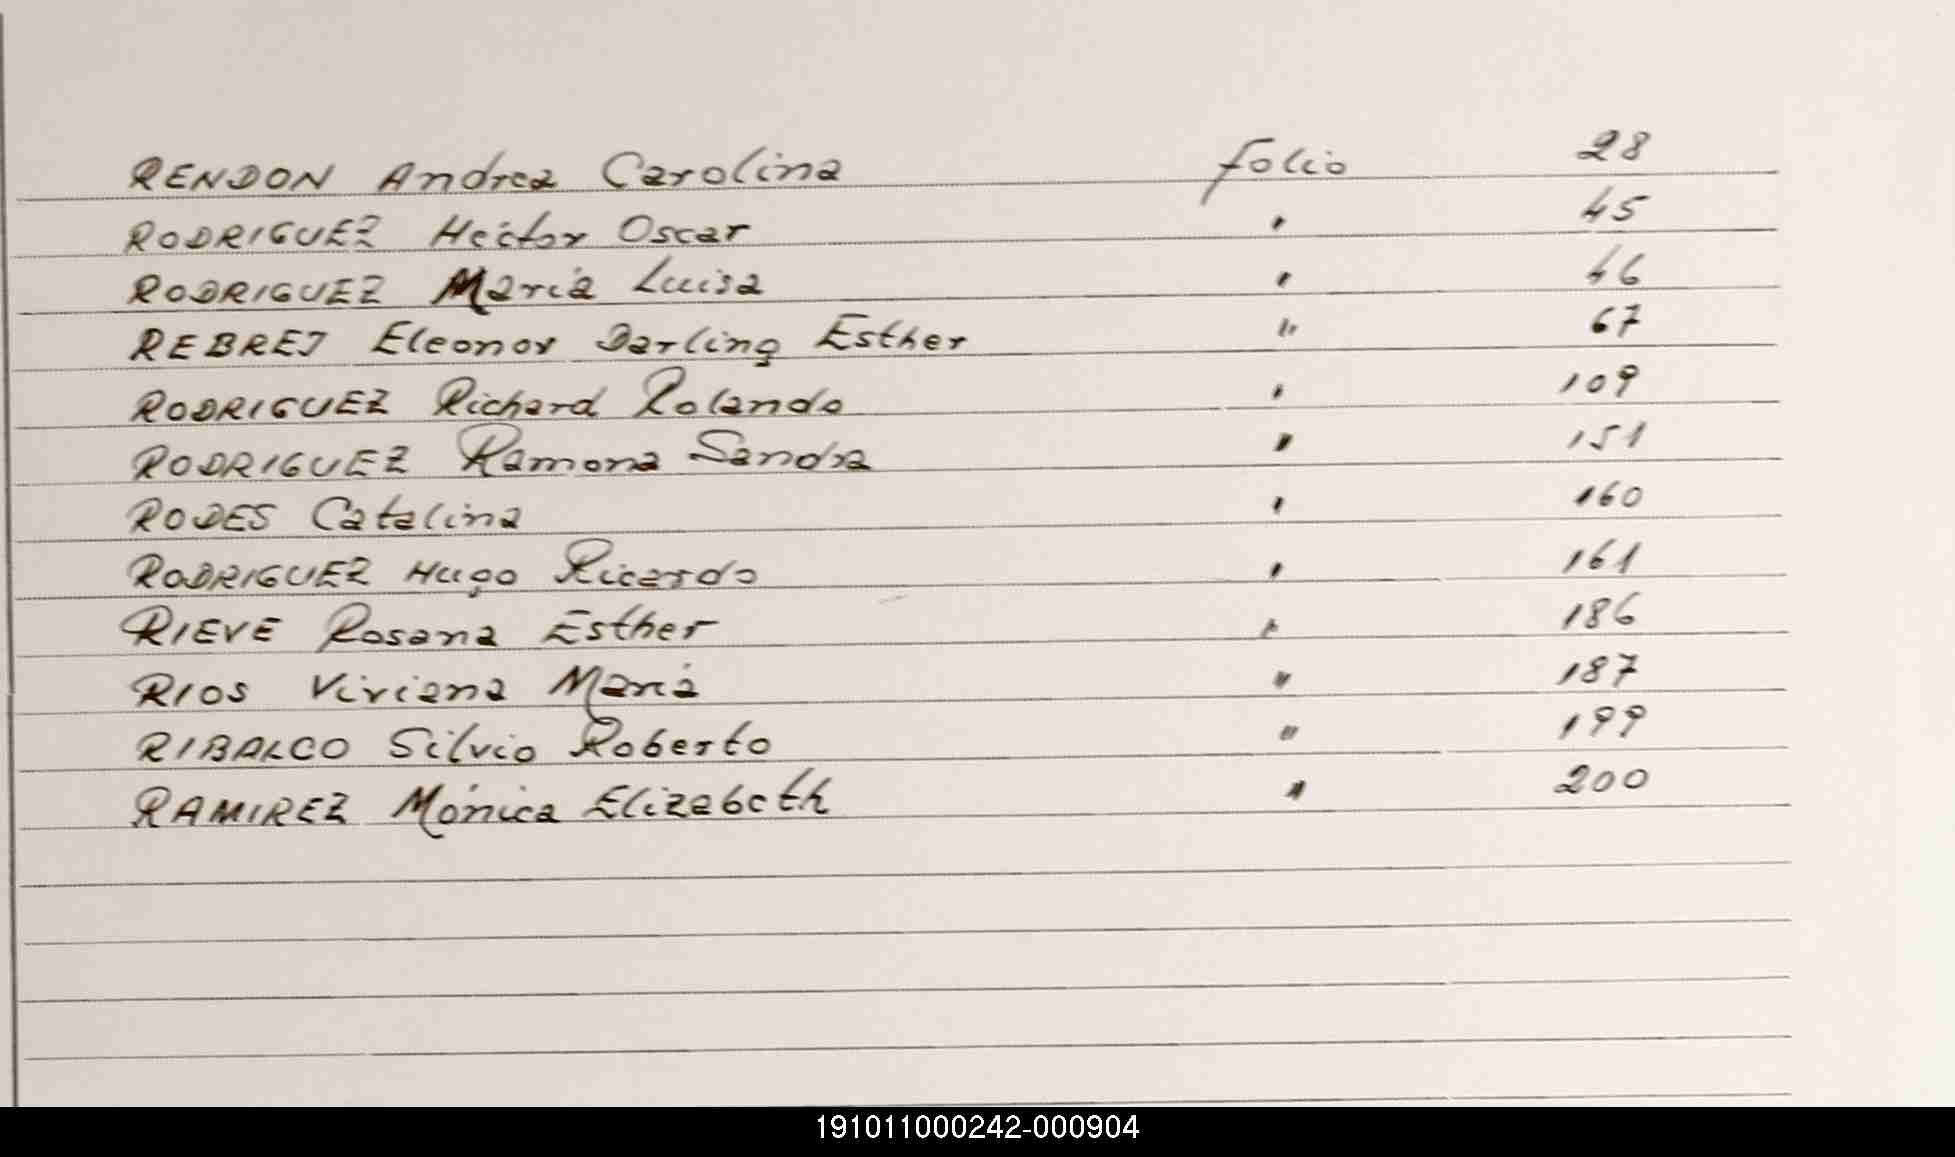 RENDON Andrea Carolina folio 28
RODRIGUEZ Hector Oscar " 45
RODRIGUEZ María Luisa " 46
REBREJ Eleonor Darling Esther " 67
RODRIGUEZ Richard Rolando " 109
RODRIGUEZ Ramona Sandra " 151
RODES Catalina " 160
RODRIGUEZ Hugo Ricardo " 161
RIEVE Rosana Esther " 186
RIOS Viviana María " 187
RIBALCO Silvio Roberto " 199
RAMIREZ Mónica Elizabeth " 200
191011000242-000904